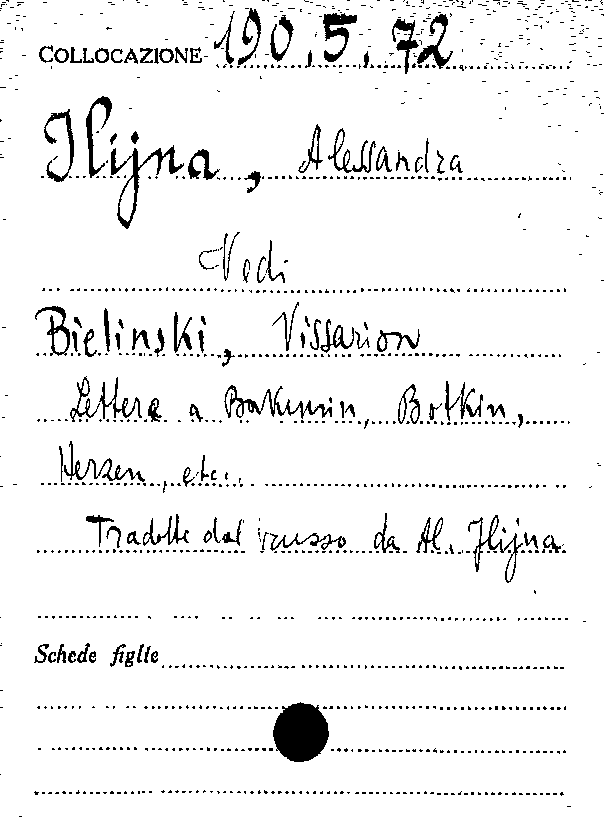 COLLOCAZIONE 190.5.72
Ilijna, Alessandra
Vedi
Bielinski, Vissarion
Lettere a Bakunin, Botkin,
Herzen, etc..
Tradotte dal russo da Al. Ilijna
Schede figlie